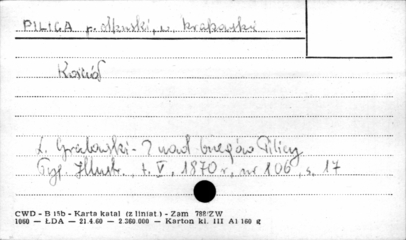 PILICA p. olkuski, w. krakowski
Kościół
L. Grabowski - Z nad brzegów Pilicy
Tyg. Illustr., t. V, 1870 r., nr 106, s. 17
CWD - B 15b - Karta katal (z liniat.) - Zam 788/ZW
1060 — ŁDA — 21.4.60 — 2.360.000 — Karton kl. III A1 160 g